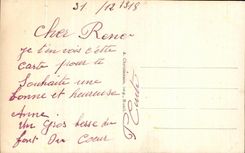 31/12/1918
Cher René
je t'en vois cette
carte pour te
Souhaite une
bonne et heureuse
Anne.
un Gros besse du
font du Coeur